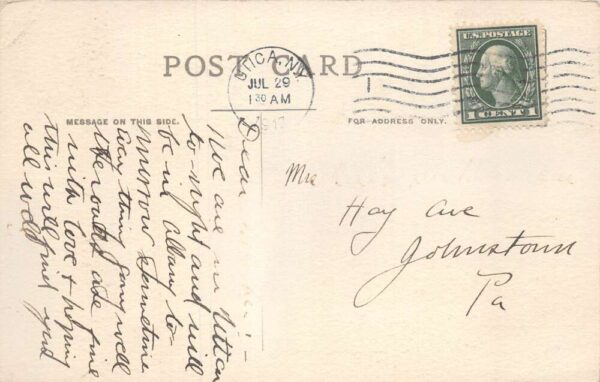 POST CARD
UTICA, N.Y.
JUL 29
1 30 AM
1917
U.S. POSTAGE
1 CENT 1
MESSAGE ON THIS SIDE.
FOR ADDRESS ONLY.
Dear
We are in Uttica
to-night and will
be in Albany to-
morrow sometime
Every thing going well
the roads are fine
with love & hoping
this will find you
all well
Mrs
Hay Ave
Johnstown
Pa